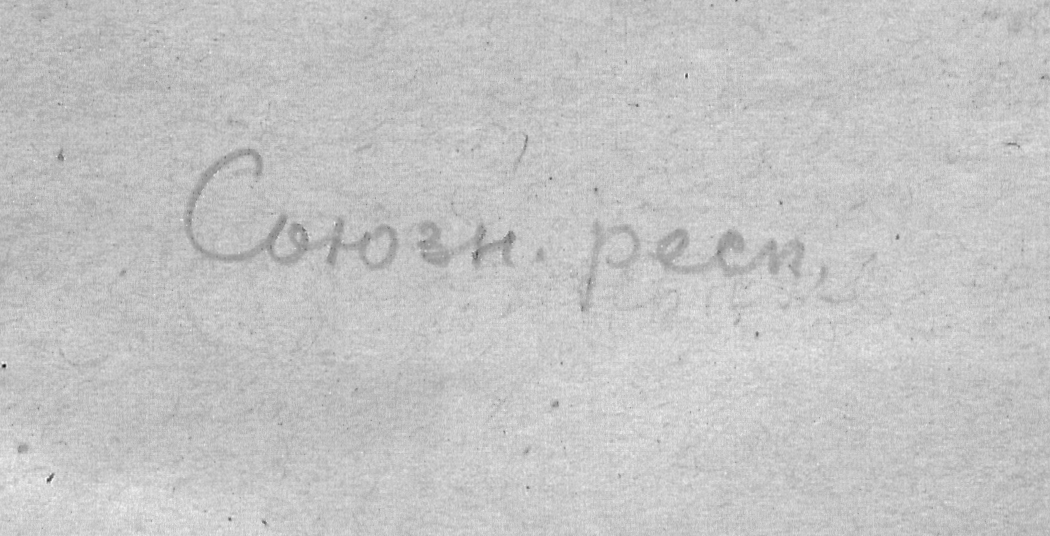 Союзн. респ.